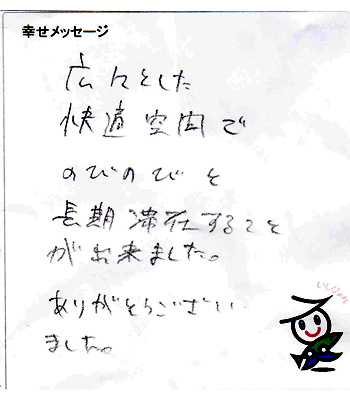 幸せメッセージ
広々とした
快適空間で
のびのびと
長期滞在すること
がお来ました。
ありがとうござい
ました。